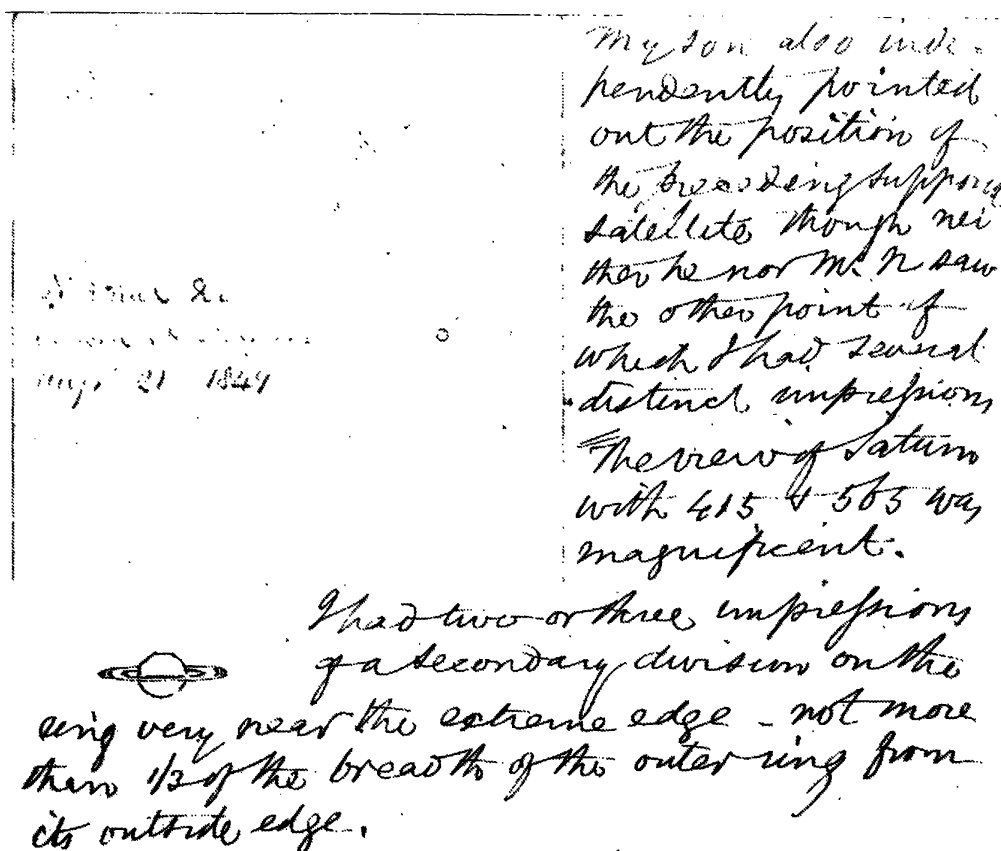 My son also inde-
pendently pointed
out the position of
the preceding
satellite though nei
ther he nor Mr. N saw
the other point of
which I had several
distinct impressions
The view of Saturn
with 415 & 565 was
magnificent.
&c
21 1849
I had two or three impressions
of a secondary division on the
ring very near the extreme edge - not more
than 1/3 of the breadth of the outer ring from
its outside edge.